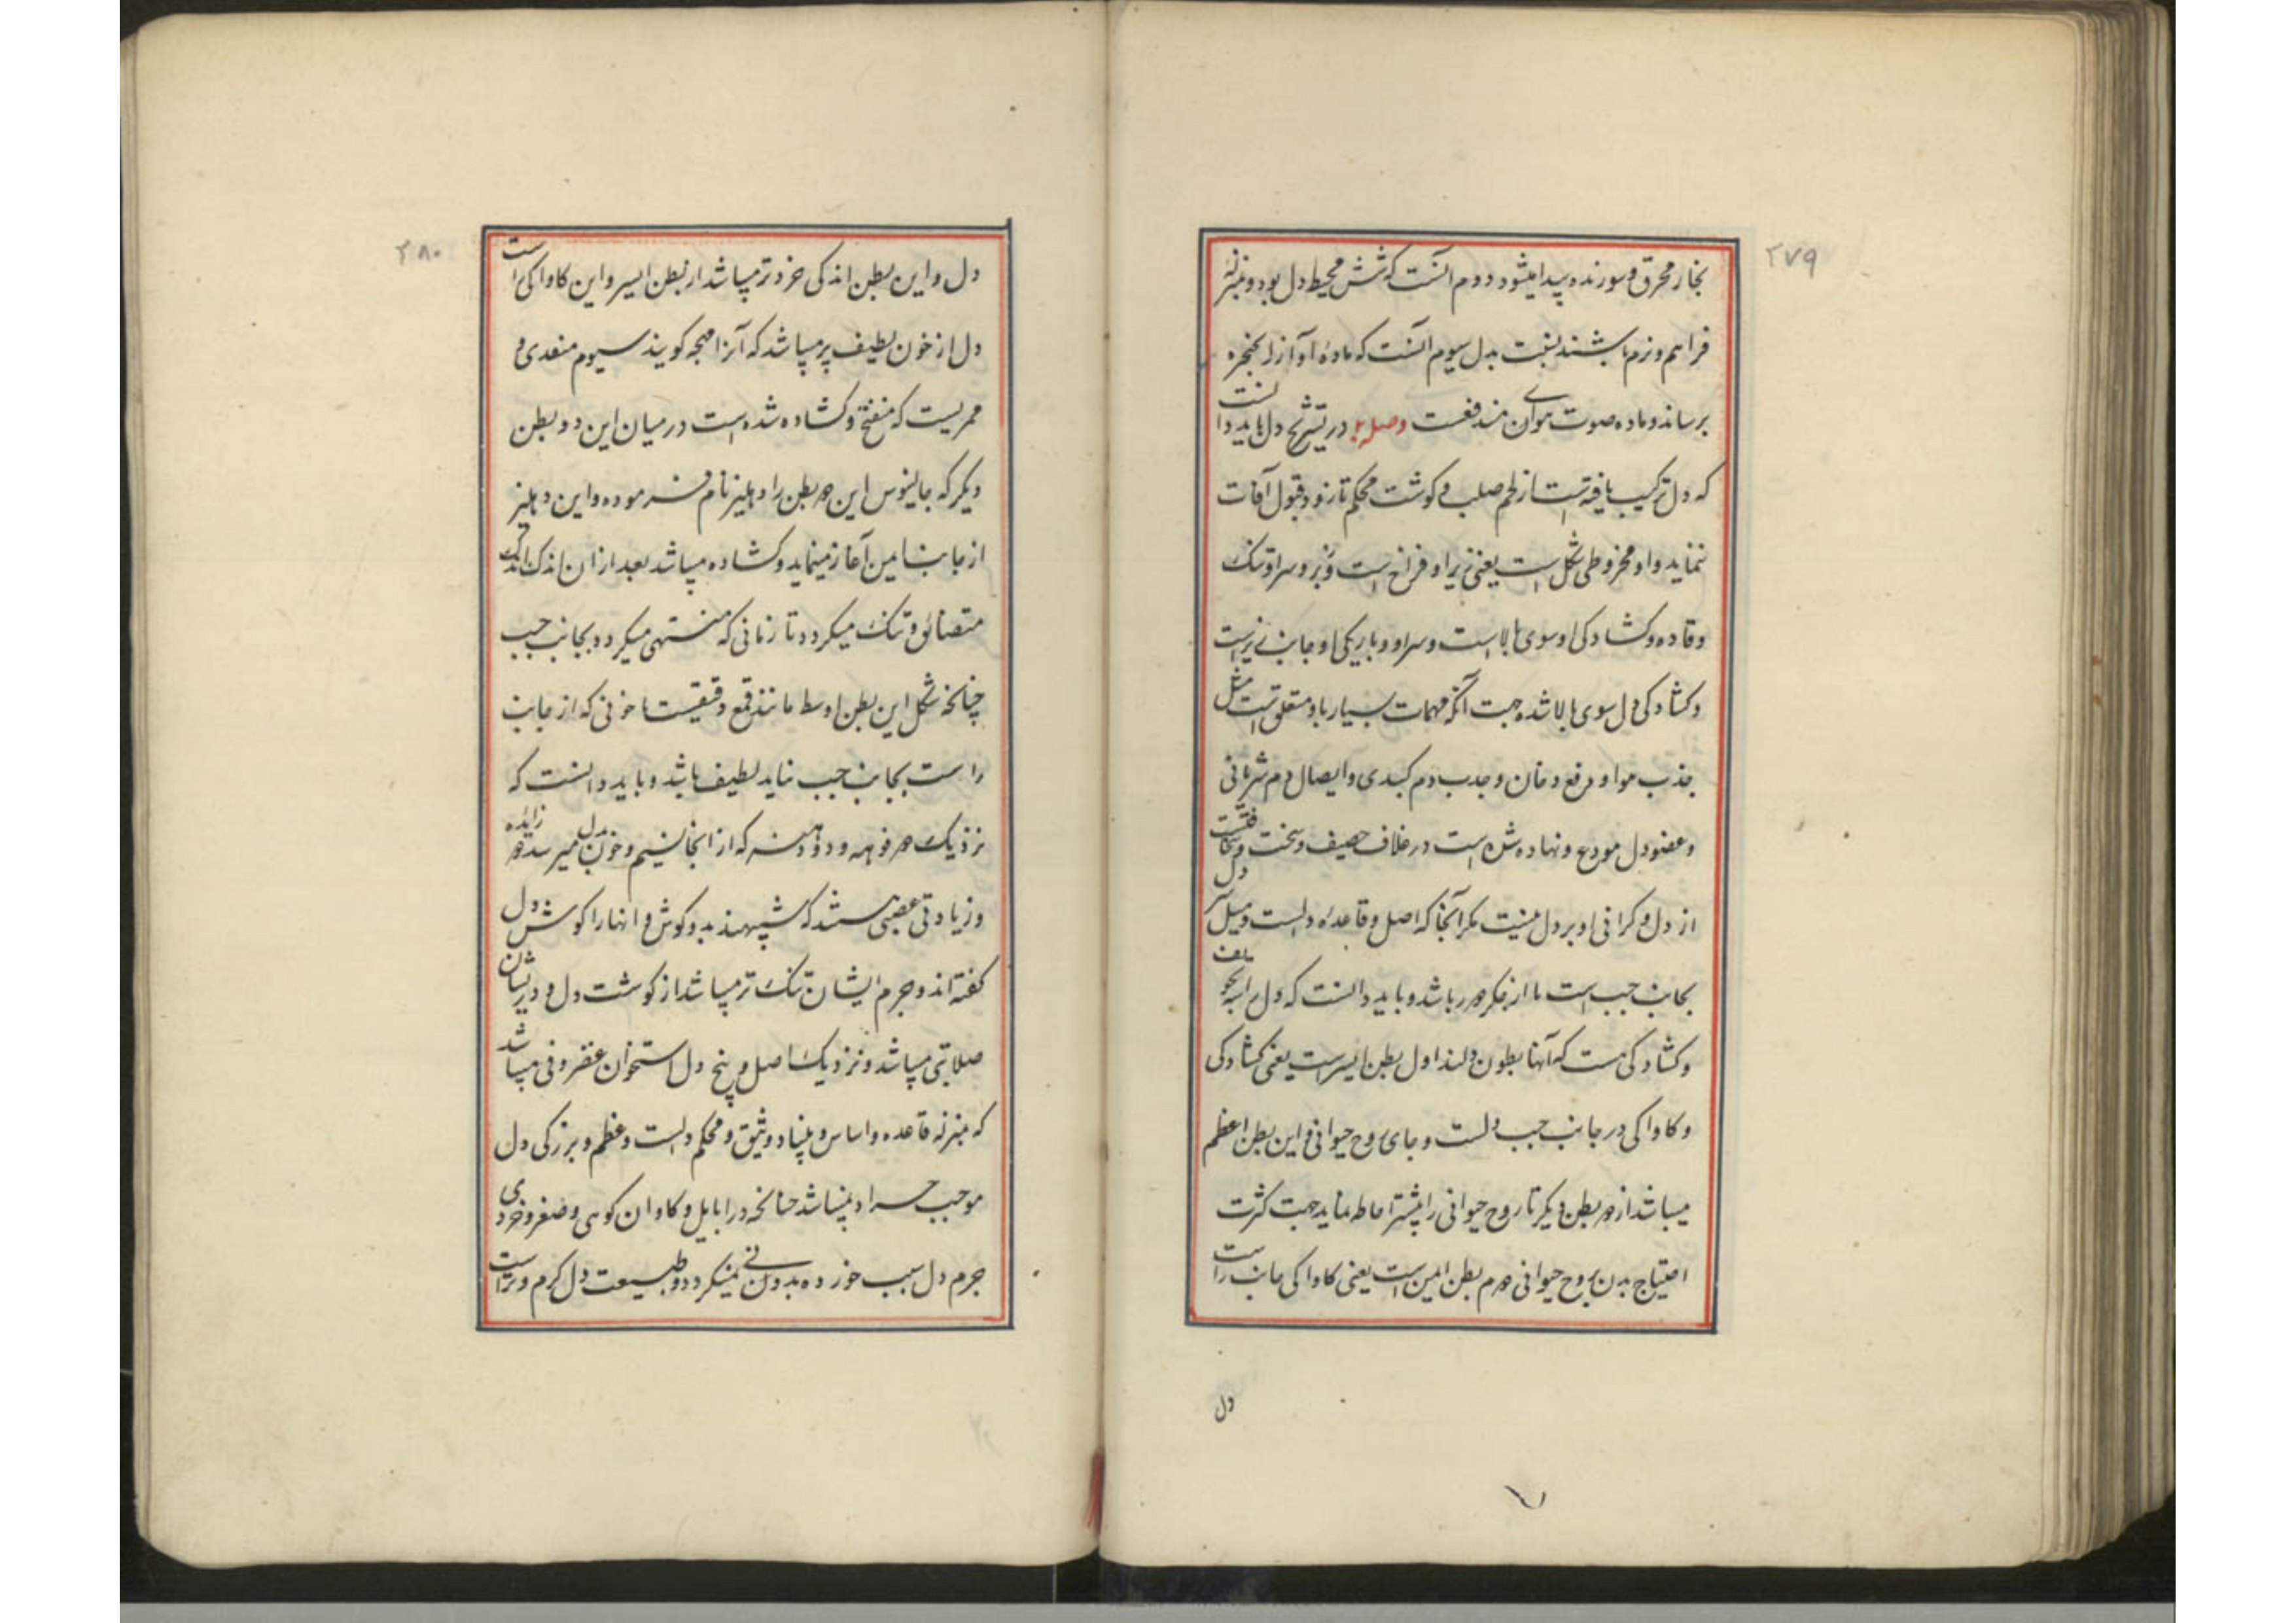 ۲۷۹
بخار محرق و سوزنده پیدا میشود دوم آنست که شش محیط دل بود و بمنزلهٔ
فراهم و نرم باشند نسبت بدل سیوم آنست که ماده آواز را بحنجره
برساند و ماده صوت هوای مندفعست وصل در تشریح دل باید دانست
که دل ترکیب یافته است از لحم صلب و کوشت محکم تا زود قبول آفات
ننماید و او مخروطی شکل است یعنی زیر او فراخ است و سر او تنک
و قاعده و کشادکی او سوی بالا است و سر او و باریکی او جانب زیر است
و کشادکی دل سوی بالا شده جهت آنکه مهمات بسیار باو متعلق است مثل
جذب هوا و دفع دخان و جذب دم کبدی و ایصال دم شریانی
و عضو دل مودع و نهاده شده است در غلاف حصیف و سخت و
از دل و کرانی او بر دل نیست مکر آنجا که اصل و قاعده دلست و میل سر دل
بجانب چپ است تا از جکر دور باشد و باید دانست که دل را سه تجویف
و کشادکی هست که آنها بطون دلند اول بطن ایسر است یعنی کشادکی
و کاواکی در جانب چپ دلست و جای روح حیوانی و این بطن اعظم
میباشد از دو بطن دیکر تا روح حیوانی را بیشتر احاطه نماید جهت کثرت
احتیاج بدن بروح حیوانی دوم بطن ایمن است یعنی کاواکی جانب راست
دل
۲۸۰
دل و این بطن اندکی خردتر میباشد از بطن ایسر و این کاواکی راست
دل از خون لطیف پر میباشد که آنرا مهجه کویند سیوم منفذی و
ممریست که منفتح و کشاده شده است در میان این دو بطن
دیکر که جالینوس این دو بطن را دهلیز نام فرموده و این دهلیز
از جانب ایمن آغاز مینماید و کشاده میباشد بعد از ان اندک اندک
متضائق و تنک میکردد تا زمانی که منتهی میکردد بجانب چپ
چنانچه شکل این بطن اوسط مانند قمع دقیقیست تا خونی که از جانب
راست بجانب چپ نماید لطیف باشد و باید دانست که
نزدیک دو فوهه و دو دهنه که از انجا نسیم و خون بدل میرسد دو زایده
و زیادتی عصبی هستند که شبیهند بدو کوش و انها را کوش دل
کفته اند و جرم ایشان تنک تر میباشد از کوشت دل و در ایشان
صلابتی میباشد و نزدیک اصل و بیخ دل استخوان غضروفی میباشد
که بمنزله قاعده و اساس و بنیاد وثیق و محکم دلست و عظم و بزرکی دل
موجب جسارت نمیباشد چنانچه در ابابیل و کاوان کوهی و صغر و خردی
جرم دل سبب خورده بدوانی نمیکردد و طبیعت دل کرم و تر است